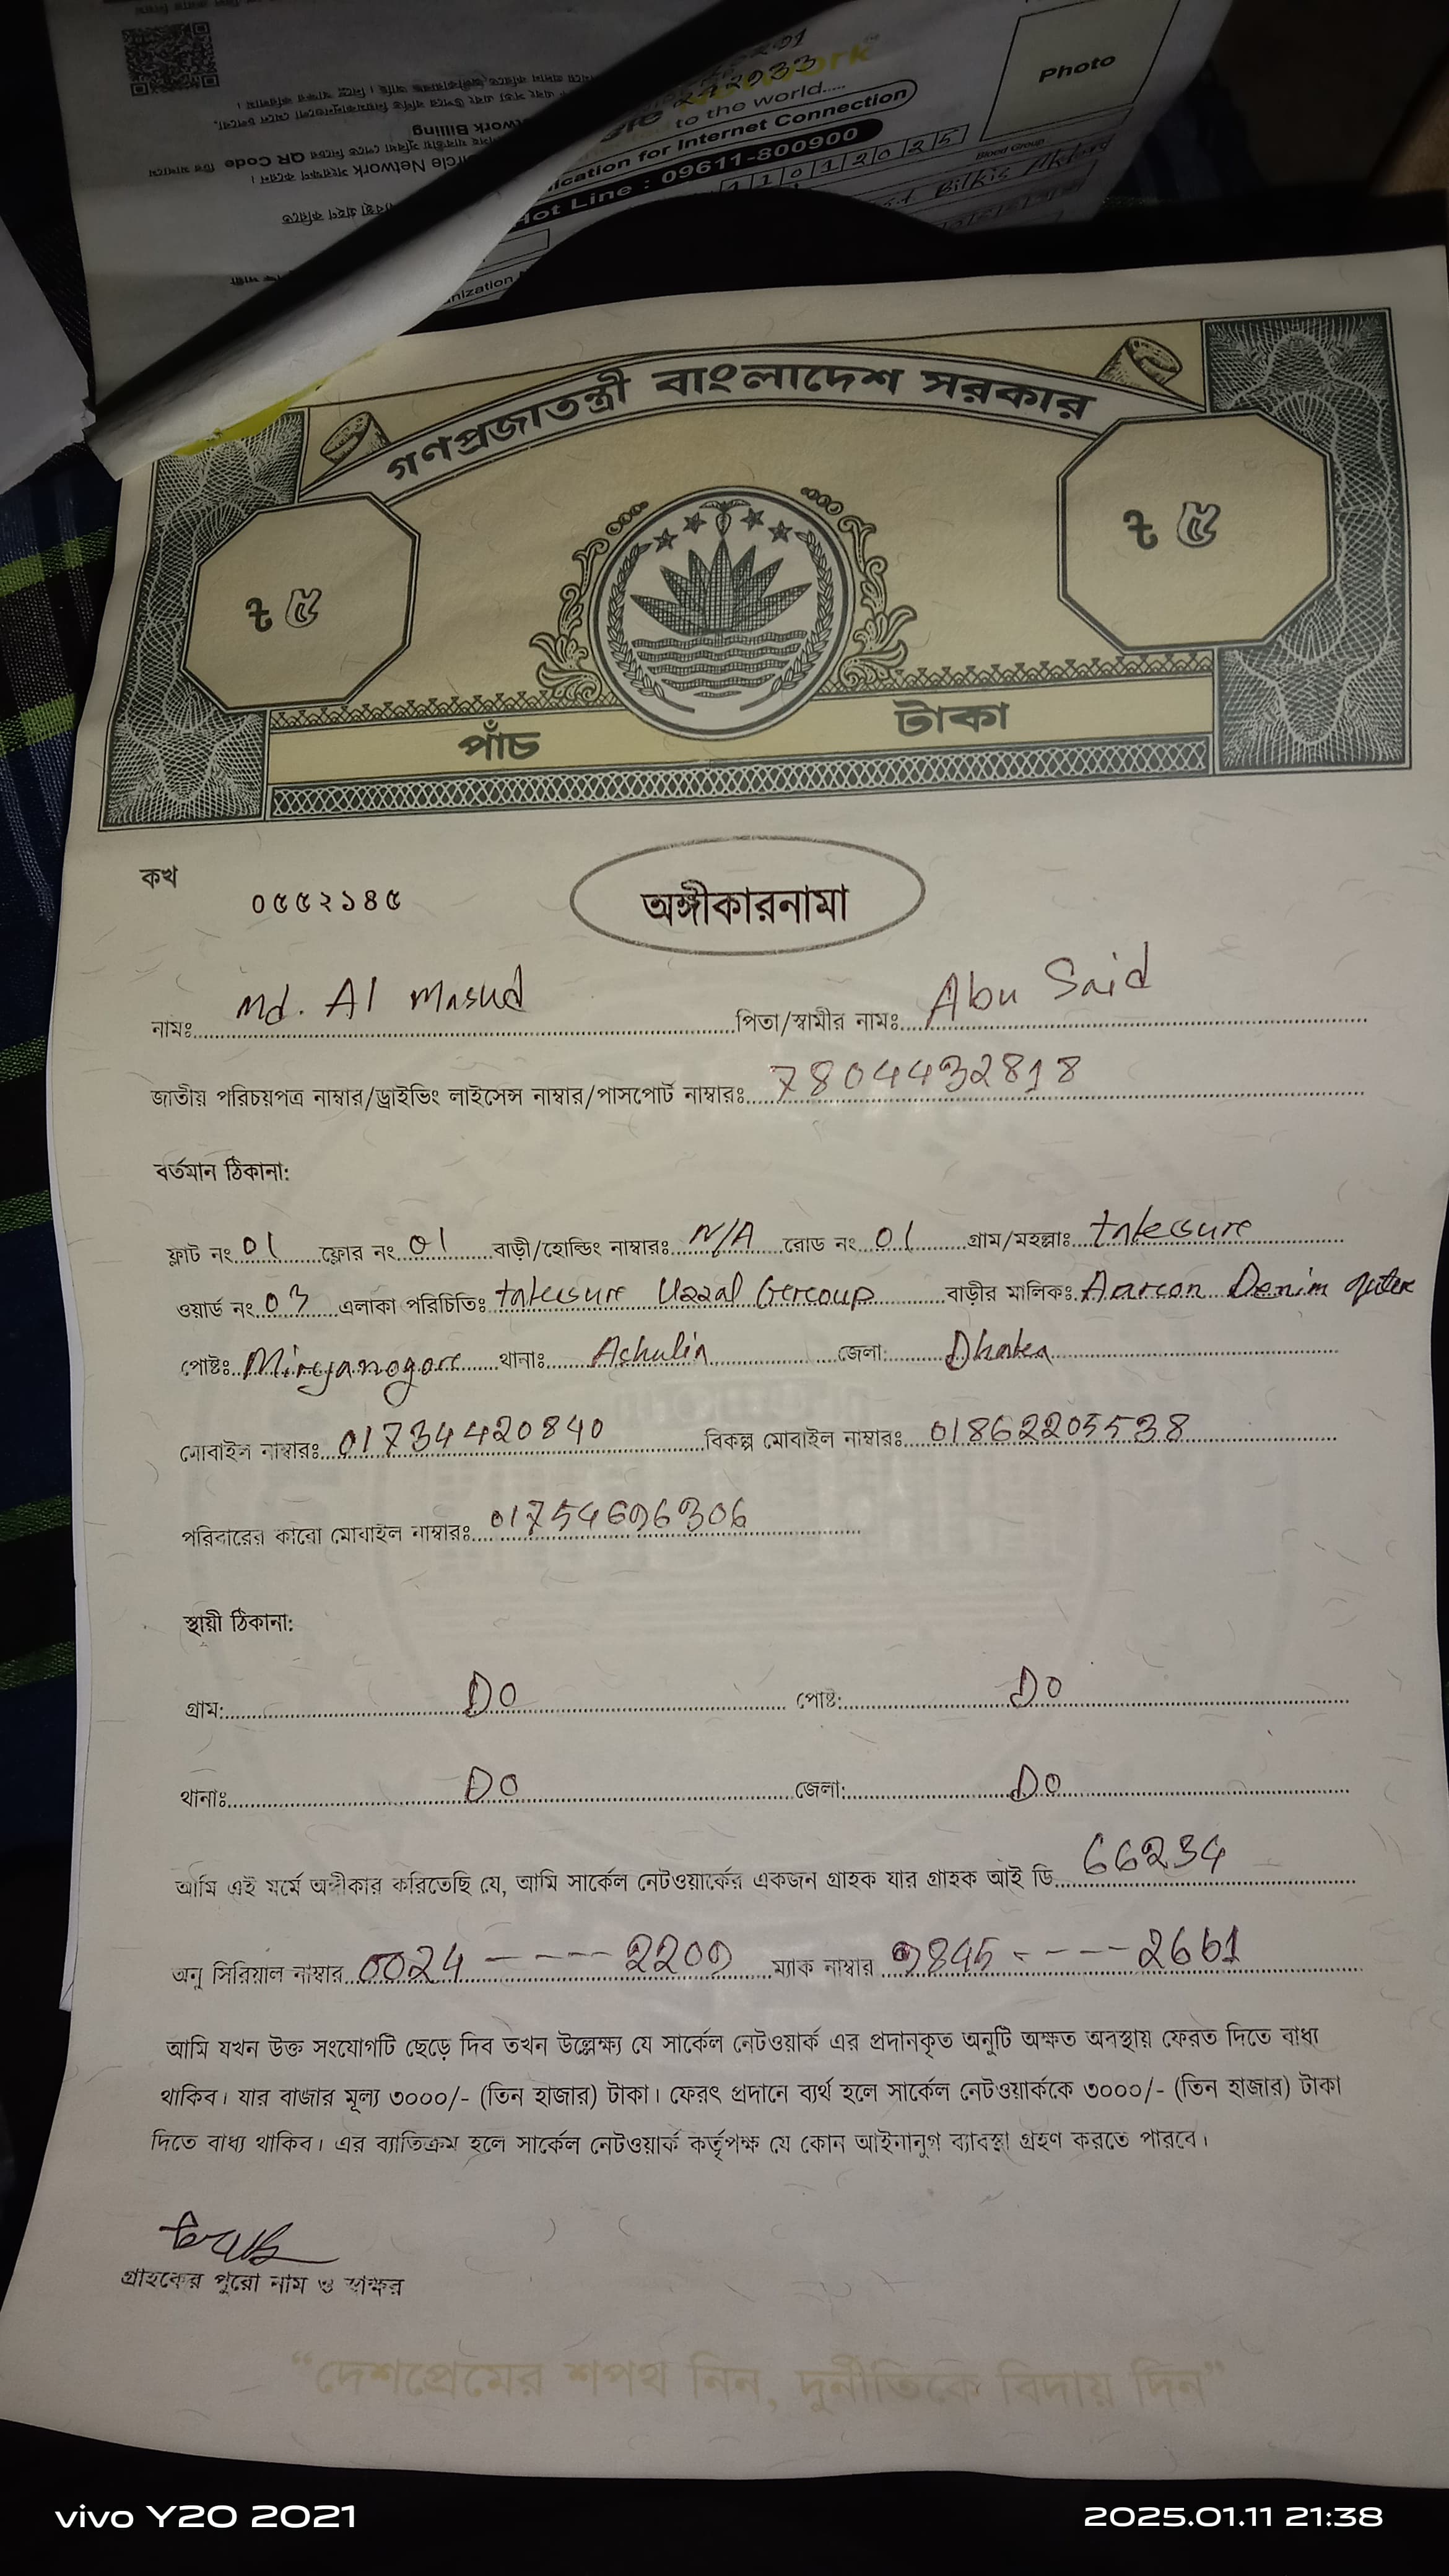 Photo
to the world.....
ication for Internet Connection
Hot Line : 09611-800900
11012025
Blood Group
Bilkis Akter
QR Code
work Billing
rcle Network
nization
গণপ্রজাতন্ত্রী বাংলাদেশ সরকার
৳ ৫
৳ ৫
পাঁচ টাকা
কখ
০৫৫২১৪৫
অঙ্গীকারনামা
নামঃ Md. Al Masud পিতা/স্বামীর নামঃ Abu Said
জাতীয় পরিচয়পত্র নাম্বার/ড্রাইভিং লাইসেন্স নাম্বার/পাসপোর্ট নাম্বারঃ 7804432818
বর্তমান ঠিকানা:
ফ্লাট নং 01 ফ্লোর নং 01 বাড়ী/হোল্ডিং নাম্বারঃ N/A রোড নং 01 গ্রাম/মহল্লাঃ takessure
ওয়ার্ড নং 03 এলাকা পরিচিতিঃ takessure Uzzal Gercoup বাড়ীর মালিকঃ Aarcon Denim
পোষ্টঃ Mirejanogore থানাঃ Ashulia জেলা: Dhaka
মোবাইল নাম্বারঃ 01734420840 বিকল্প মোবাইল নাম্বারঃ 01862205538
পরিবারের কারো মোবাইল নাম্বারঃ 01754696306
স্থায়ী ঠিকানা:
গ্রাম: DO পোষ্ট: DO
থানাঃ DO জেলা: DO
আমি এই মর্মে অঙ্গীকার করিতেছি যে, আমি সার্কেল নেটওয়ার্কের একজন গ্রাহক যার গ্রাহক আই ডি 66234
অনু সিরিয়াল নাম্বার 0024 ----- 2209 ম্যাক নাম্বার 9845 ----- 2661
আমি যখন উক্ত সংযোগটি ছেড়ে দিব তখন উল্লেক্ষ্য যে সার্কেল নেটওয়ার্ক এর প্রদানকৃত অনুটি অক্ষত অবস্থায় ফেরত দিতে বাধ্য
থাকিব। যার বাজার মূল্য ৩০০০/- (তিন হাজার) টাকা। ফেরৎ প্রদানে ব্যর্থ হলে সার্কেল নেটওয়ার্ককে ৩০০০/- (তিন হাজার) টাকা
দিতে বাধ্য থাকিব। এর ব্যাতিক্রম হলে সার্কেল নেটওয়ার্ক কর্তৃপক্ষ যে কোন আইনানুগ ব্যাবস্থা গ্রহণ করতে পারবে।
গ্রাহকের পুরো নাম ও স্বাক্ষর
“দেশপ্রেমের শপথ নিন, দুর্নীতিকে বিদায় দিন”
vivo Y20 2021
2025.01.11 21:38